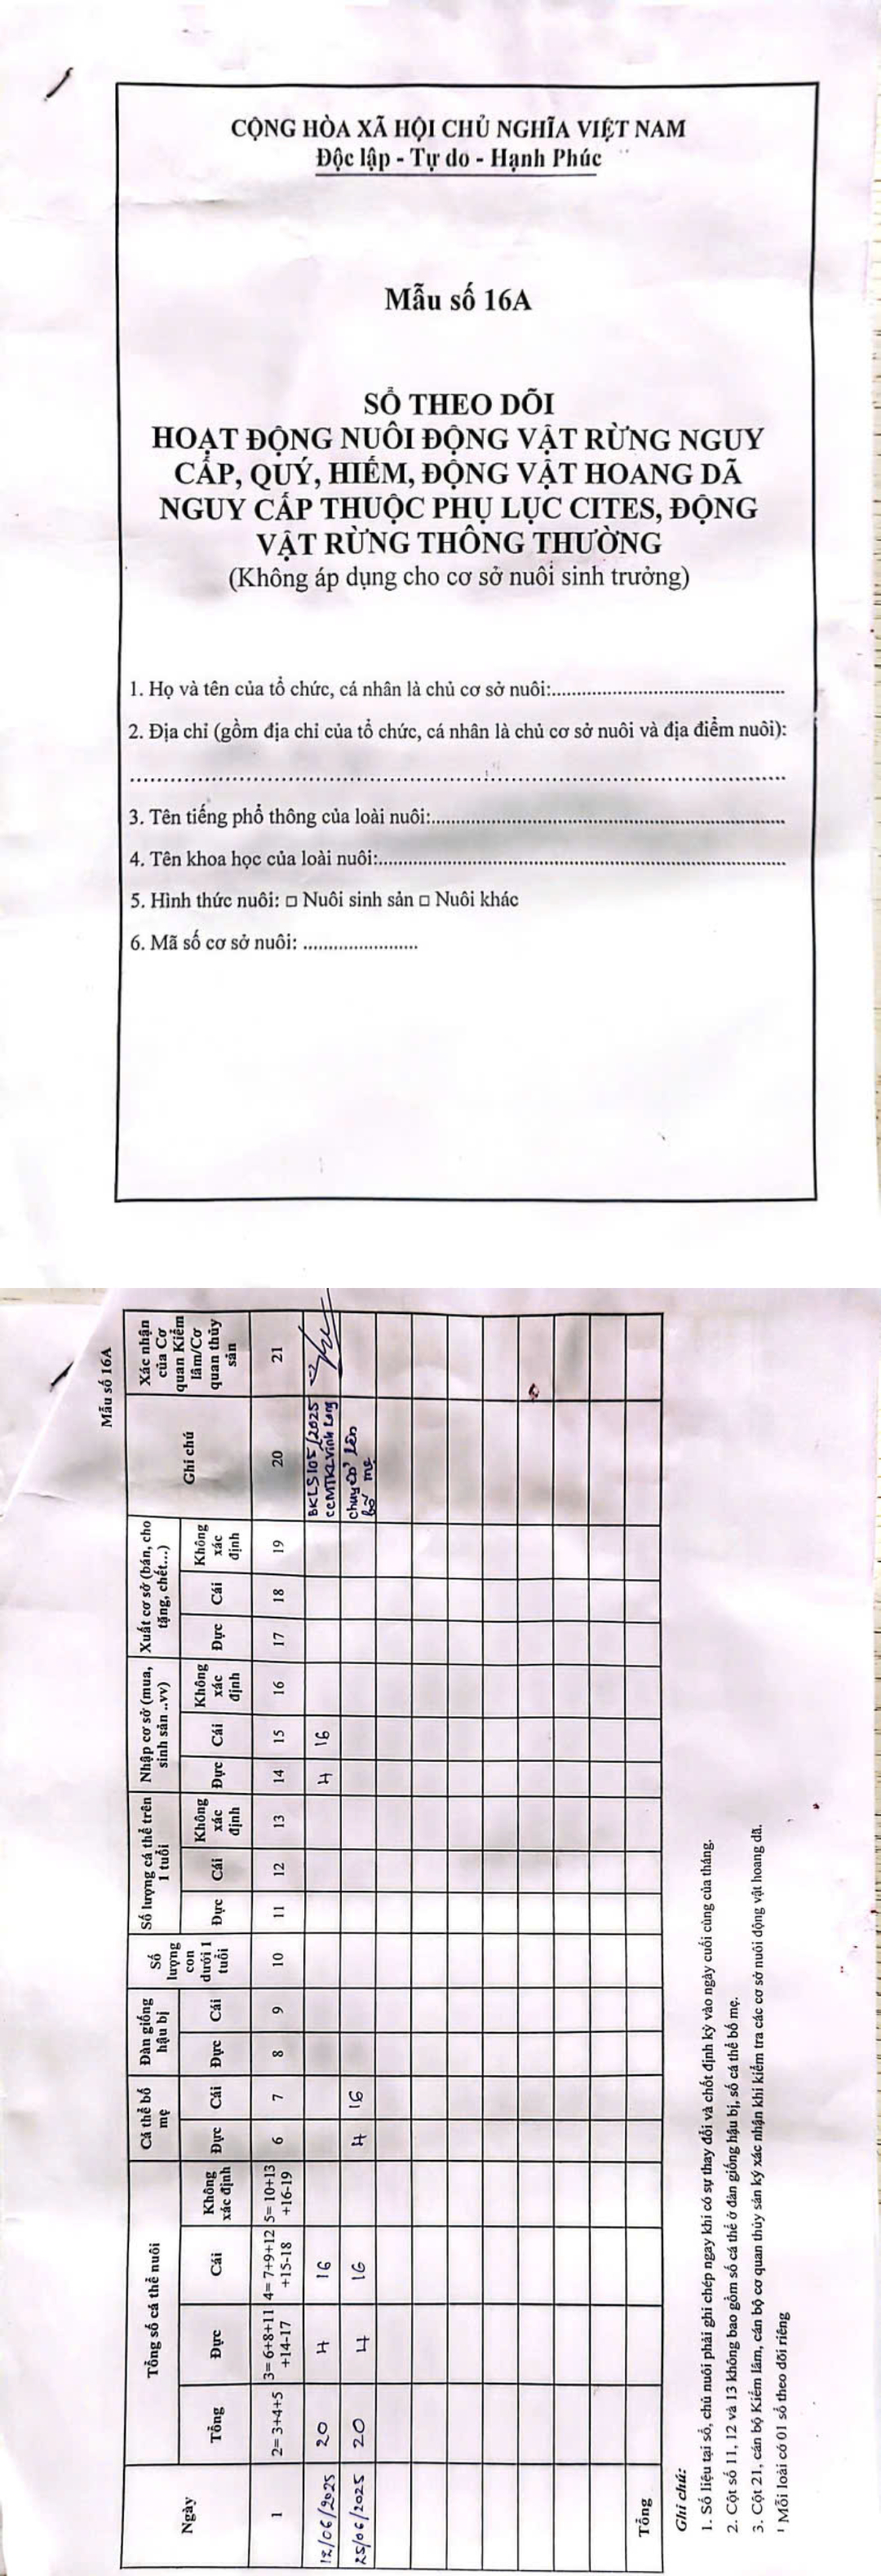 CỘNG HÒA XÃ HỘI CHỦ NGHĨA VIỆT NAM
Độc lập - Tự do - Hạnh Phúc
Mẫu số 16A
SỔ THEO DÕI
HOẠT ĐỘNG NUÔI ĐỘNG VẬT RỪNG NGUY
CẤP, QUÝ, HIẾM, ĐỘNG VẬT HOANG DÃ
NGUY CẤP THUỘC PHỤ LỤC CITES, ĐỘNG
VẬT RỪNG THÔNG THƯỜNG
(Không áp dụng cho cơ sở nuôi sinh trưởng)
1. Họ và tên của tổ chức, cá nhân là chủ cơ sở nuôi:
2. Địa chỉ (gồm địa chỉ của tổ chức, cá nhân là chủ cơ sở nuôi và địa điểm nuôi):
3. Tên tiếng phổ thông của loài nuôi:
4. Tên khoa học của loài nuôi:
5. Hình thức nuôi: □ Nuôi sinh sản □ Nuôi khác
6. Mã số cơ sở nuôi:
Mẫu số 16A
Ngày
Tổng số cá thể nuôi
Cá thể bố mẹ
Đàn giống hậu bị
Số lượng con dưới 1 tuổi
Số lượng cá thể trên 1 tuổi
Nhập cơ sở (mua, sinh sản ..vv)
Xuất cơ sở (bán, cho tặng, chết...)
Ghi chú
Xác nhận của Cơ quan Kiểm lâm/Cơ quan thủy sản
Tổng Đực Cái Không xác định Đực Cái Đực Cái Đực Cái Không xác định Đực Cái Không xác định Đực Cái Không xác định
1 2= 3+4+5 3= 6+8+11+14-17 4= 7+9+12+15-18 5= 10+13+16-19 6 7 8 9 10 11 12 13 14 15 16 17 18 19 20 21
12/06/2025 20 4 16 4 16 BKLS 105/2025 CCMTKL Vĩnh Long
25/06/2025 20 4 16 4 16 chuyển lên bố mẹ
Tổng
Ghi chú:
1. Số liệu tại sổ, chủ nuôi phải ghi chép ngay khi có sự thay đổi và chốt định kỳ vào ngày cuối cùng của tháng.
2. Cột số 11, 12 và 13 không bao gồm số cá thể ở đàn giống hậu bị, số cá thể bố mẹ.
3. Cột 21, cán bộ Kiểm lâm, cán bộ cơ quan thủy sản ký xác nhận khi kiểm tra các cơ sở nuôi động vật hoang dã.
¹ Mỗi loài có 01 sổ theo dõi riêng